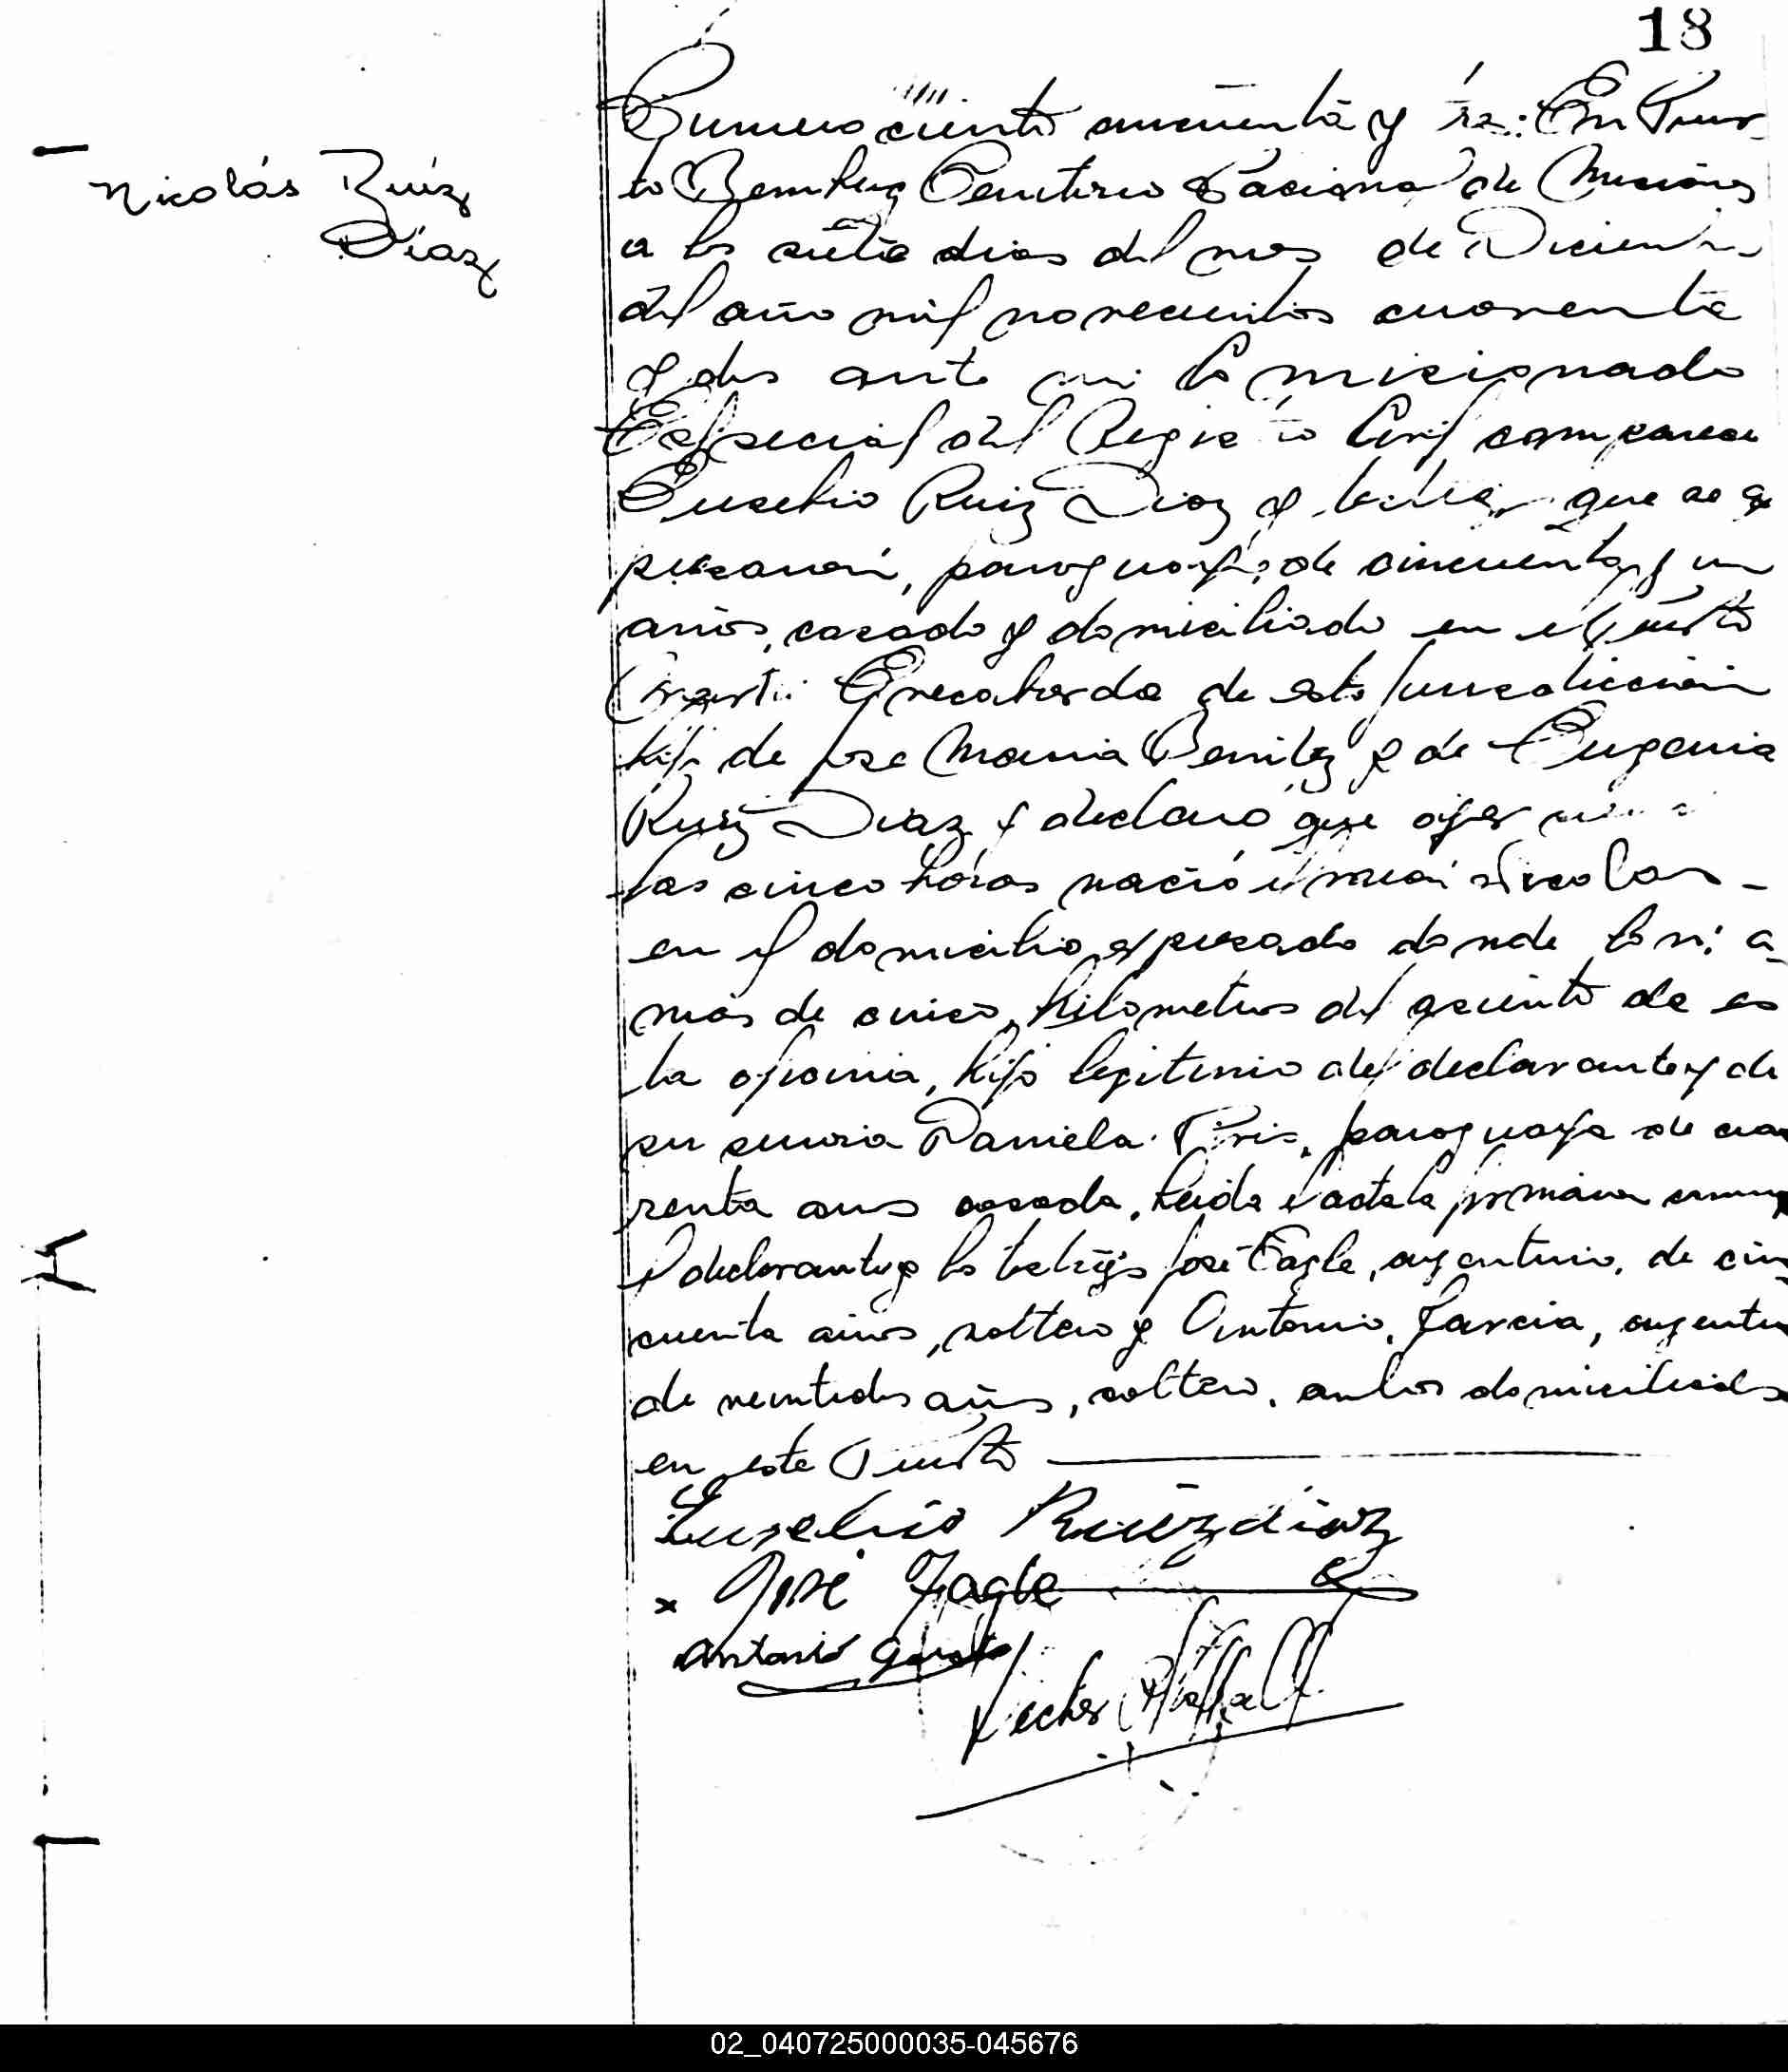 18
Nicolás Ruíz
Díaz
Numero ciento cincuenta y tres: En Puer-
to Bemberg Territorio Nacional de Misiones
a los siete dias del mes de Diciembre
del año mil novecientos cuarenta
y dos ante mi Comicionado
Especial del Registro Civil comparece
Eusebio Ruiz Diaz y que se ex
presaran, paraguayo, de cincuenta y un
años, casado y domiciliado en el Puerto
de esta jurisdiccion
hijo de Jose Maria Benitez y de Eugenia
Ruiz Diaz y declaró que ayer
las cinco horas nació el varon Nicolas -
en el domicilio expresado donde a
mas de cinco kilometros del asiento de es
ta oficina, hijo legitimo del declarante y de
su esposa Daniela paraguaya de cua
renta años casada. Leida el acta la firmaron conmigo
el declarante y los testigos José Tagle, argentino, de cin
cuenta años, soltero y Antonio Garcia, argentino
de veintidos años, soltero. ambos domiciliados
en este Puerto
Eusebio Ruíz díaz
x José Tagle
Antonio Garcia
02_040725000035-045676